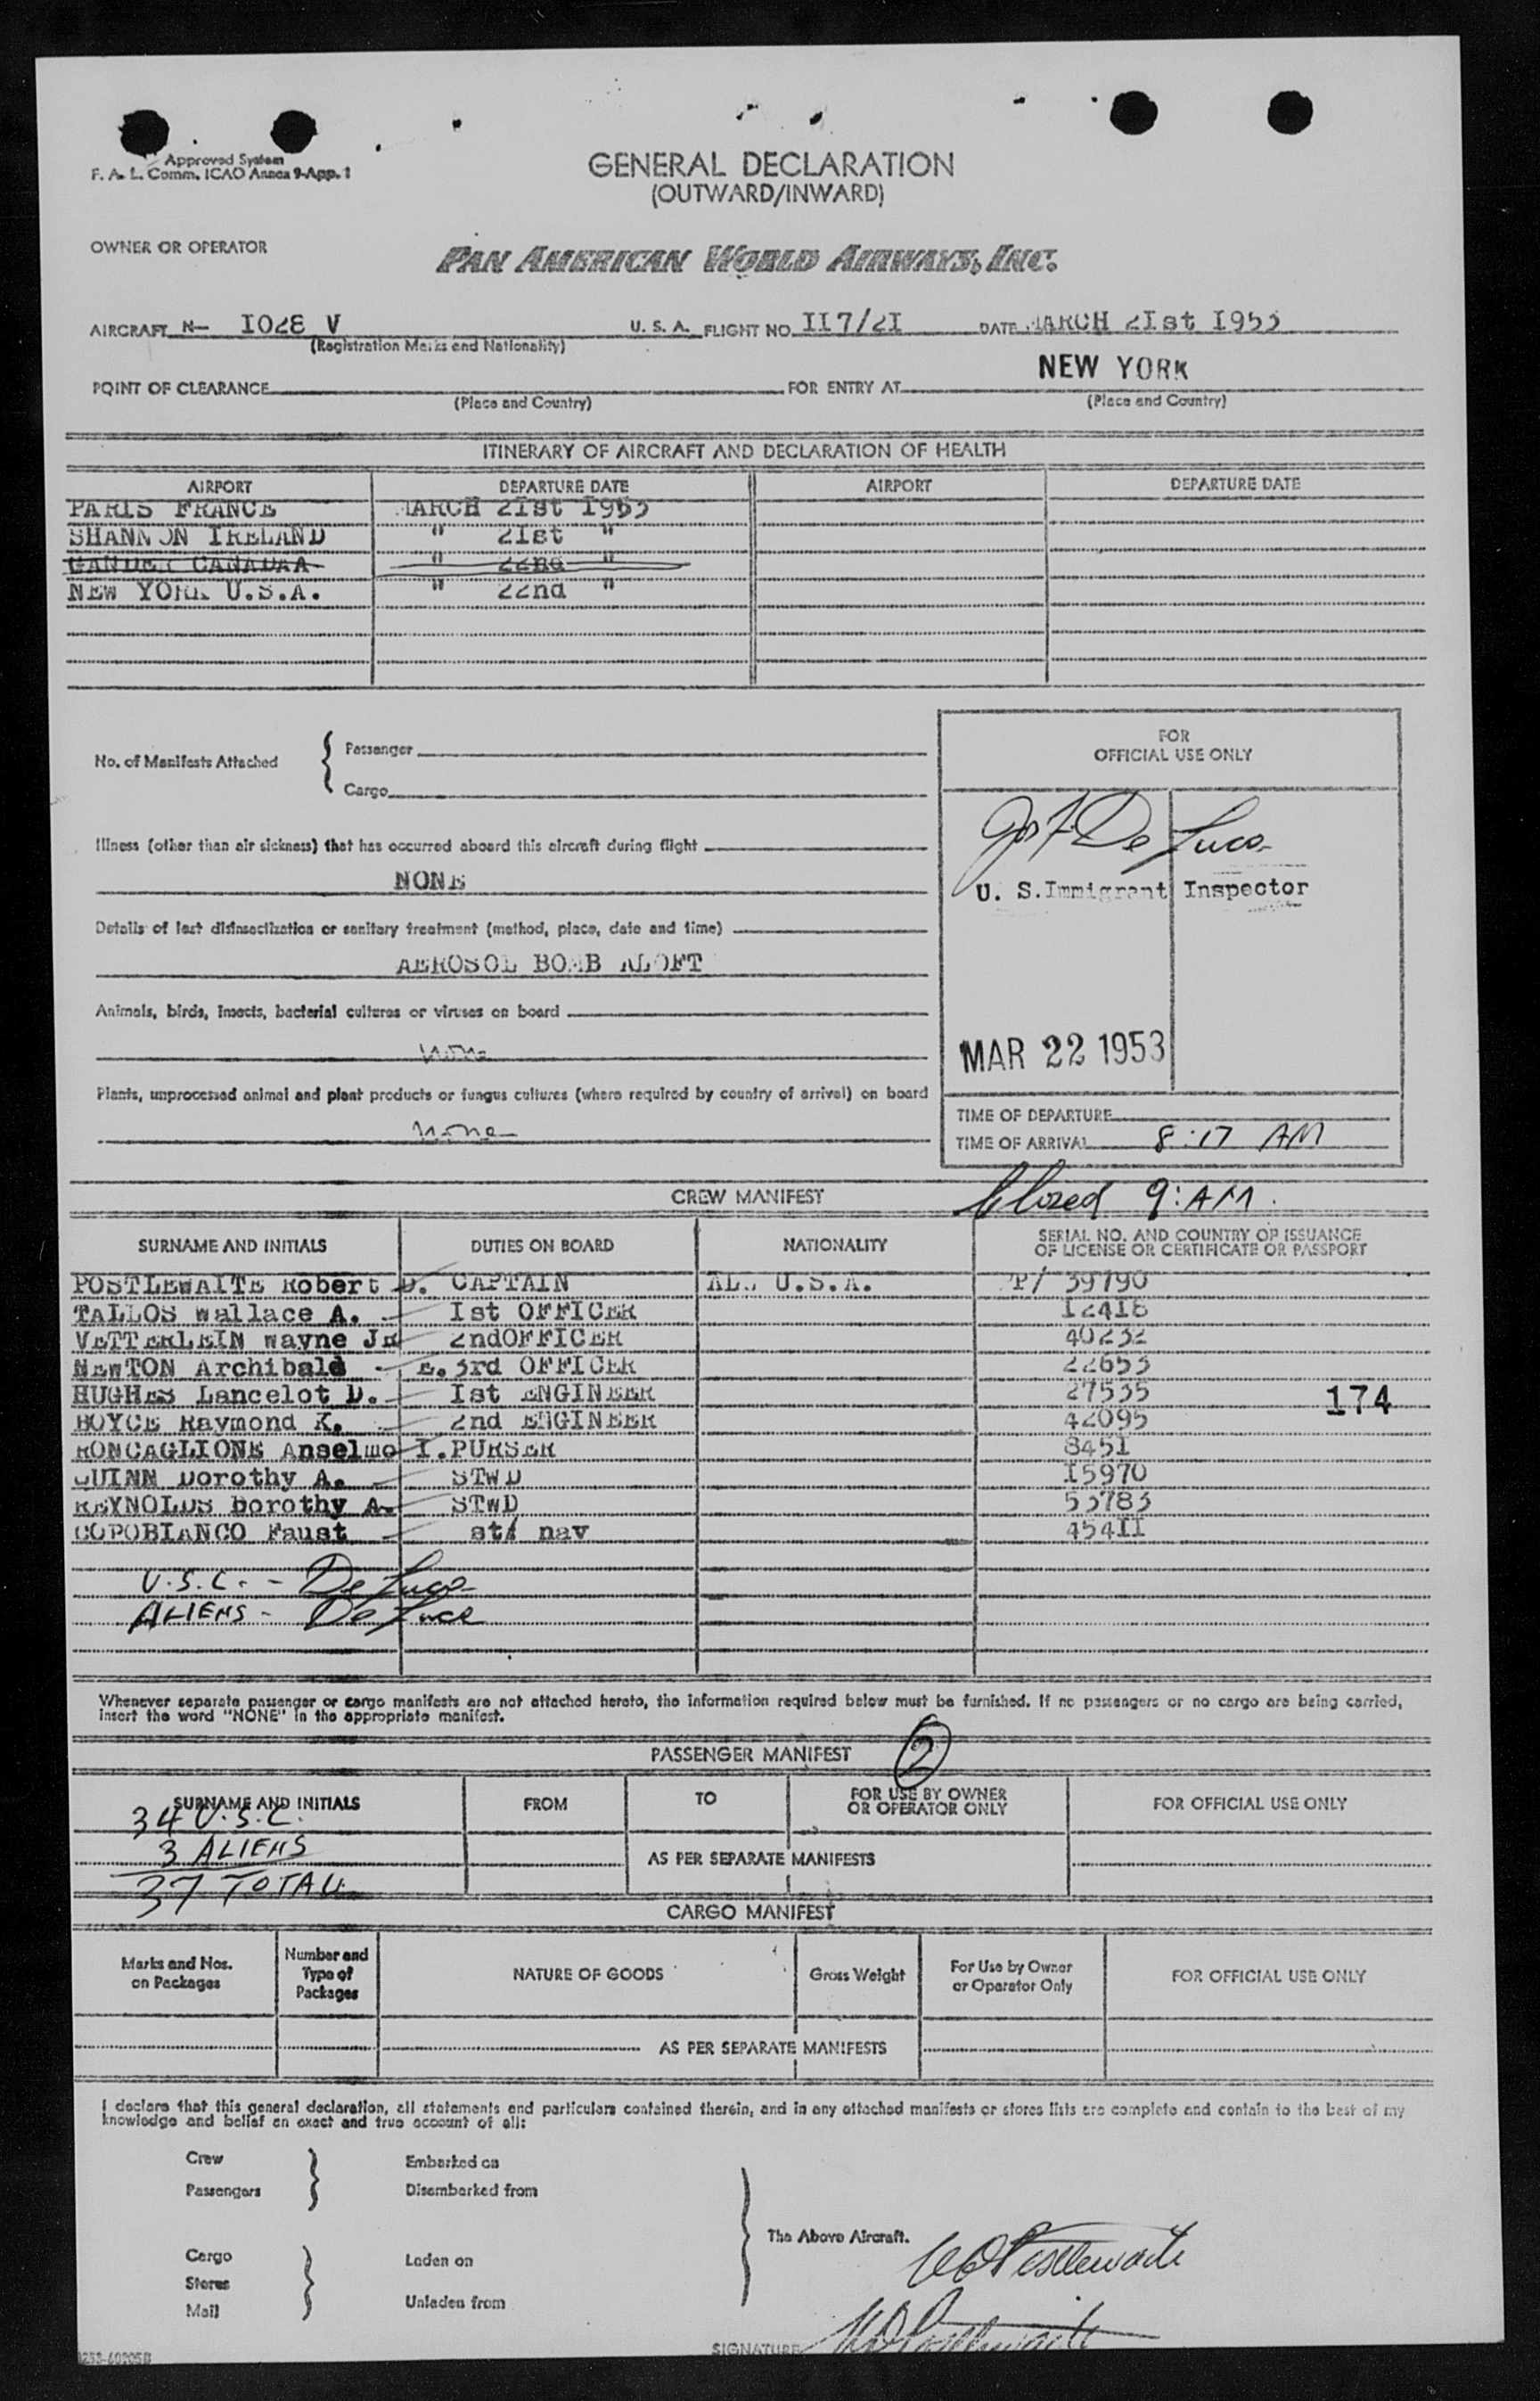 Approved System
F. A. L. Comm. ICAO Annex 9-App. 1
GENERAL DECLARATION
(OUTWARD/INWARD)
OWNER OR OPERATOR
PAN AMERICAN WORLD AIRWAYS, INC.
AIRCRAFT N- I028 V U. S. A. FLIGHT NO. II7/2I DATE MARCH 2Ist I953
(Registration Marks and Nationality)
NEW YORK
POINT OF CLEARANCE FOR ENTRY AT
(Place and Country) (Place and Country)
ITINERARY OF AIRCRAFT AND DECLARATION OF HEALTH
AIRPORT DEPARTURE DATE AIRPORT DEPARTURE DATE
PARIS FRANCE MARCH 2Ist I953
SHANNON IRELAND " 2Ist "
GANDER CANADAA " 22nd "
NEW YORK U.S.A. " 22nd "
FOR
OFFICIAL USE ONLY
No. of Manifests Attached
Passenger
Cargo
Jos F De Luca
U. S. Immigrant Inspector
Illness (other than air sickness) that has occurred aboard this aircraft during flight
NONE
Details of last disinsectization or sanitary treatment (method, place, date and time)
AEROSOL BOMB ALOFT
Animals, birds, insects, bacterial cultures or viruses on board
none
MAR 22 1953
Plants, unprocessed animal and plant products or fungus cultures (where required by country of arrival) on board
none
TIME OF DEPARTURE
TIME OF ARRIVAL 8:17 AM
CREW MANIFEST Closed 9:AM.
SURNAME AND INITIALS DUTIES ON BOARD NATIONALITY SERIAL NO. AND COUNTRY OF ISSUANCE
OF LICENSE OR CERTIFICATE OR PASSPORT
POSTLEWAITE Robert D. CAPTAIN ALL U.S.A. P/ 39790
TALLOS Wallace A. Ist OFFICER I2418
VETTERLEIN Wayne JR 2ndOFFICER 40232
NEWTON Archibald E. 3rd OFFICER 22653
HUGHES Lancelot D. Ist ENGINEER 27535
174
BOYCE Raymond K. 2nd ENGINEER 42095
RONCAGLIONE Anselmo I. PURSER 845I
QUINN Dorothy A. STWD I5970
REYNOLDS Dorothy A. STWD 53783
COPOBIANCO Faust st/ nav 454II
U.S.C. - De Luca
ALIENS - De Luca
Whenever separate passenger or cargo manifests are not attached hereto, the information required below must be furnished. If no passengers or no cargo are being carried,
insert the word "NONE" in the appropriate manifest.
PASSENGER MANIFEST 2
SURNAME AND INITIALS FROM TO FOR USE BY OWNER
OR OPERATOR ONLY FOR OFFICIAL USE ONLY
34 U.S.C.
3 ALIENS
AS PER SEPARATE MANIFESTS
37 TOTAL
CARGO MANIFEST
Marks and Nos.
on Packages
Number and
Type of
Packages
NATURE OF GOODS
Gross Weight
For Use by Owner
or Operator Only
FOR OFFICIAL USE ONLY
AS PER SEPARATE MANIFESTS
I declare that this general declaration, all statements and particulars contained therein, and in any attached manifests or stores lists are complete and contain to the best of my
knowledge and belief an exact and true account of all:
Crew Embarked on
Passengers Disembarked from
The Above Aircraft.
Cargo Laden on
Stores
Mail Unladen from
SIGNATURE